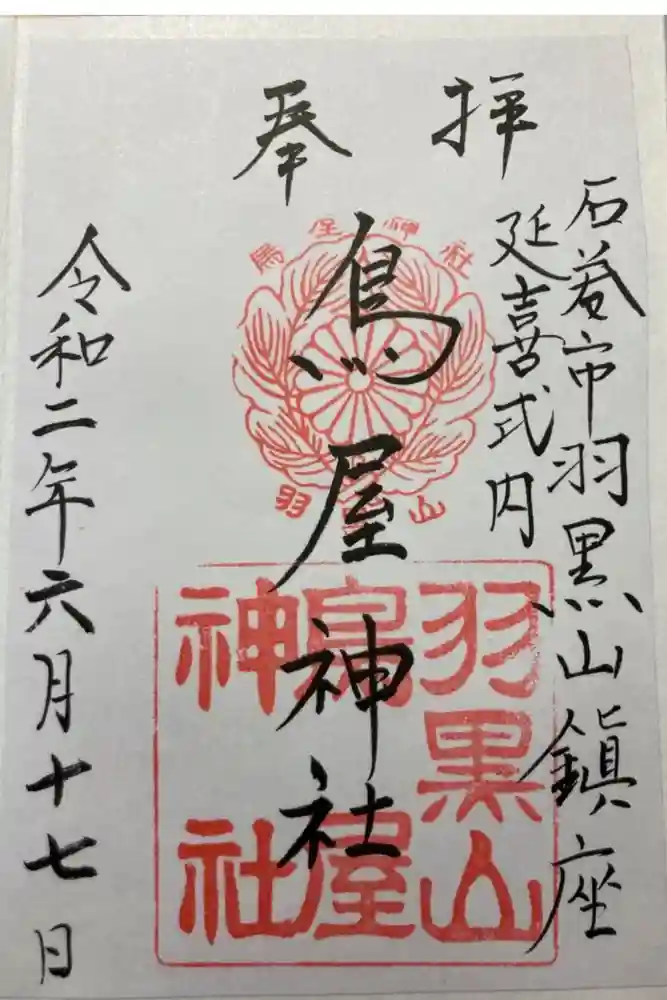 奉拝
石巻市羽黒山鎮座
延喜式内
鳥屋神社
令和二年六月十七日
鳥屋神社
羽黒山
羽黒山
鳥屋
神社